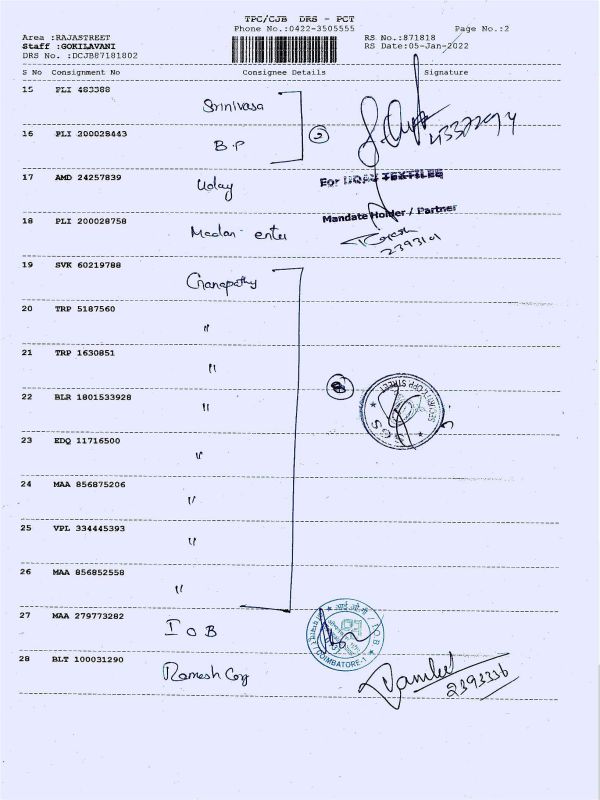 TPC/CJB DRS - PCT
Phone No.:0422-3505555 Page No.:2
Area :RAJASTREET RS No.:871818
Staff :GOKILAVANI RS Date:05-Jan-2022
DRS No. :DCJB87181802
S No Consignment No Consignee Details Signature
15 PLI 483388 Srinivasa
16 PLI 200028443 B.P
2
17 AMD 24257839 Uday
For UDAY TEXTILES
Mandate Holder / Partner
18 PLI 200028758 Madan enter
19 SVK 60219788 Ganapathy
20 TRP 5187560 "
21 TRP 1630851 "
22 BLR 1801533928 "
8
SGS
OPP STREET
23 EDQ 11716500 "
24 MAA 856875206 "
25 VPL 334445393 "
26 MAA 856852558 "
27 MAA 279773282 I O B
आई.ओ.बी / I.O.B
COIMBATORE-1
28 BLT 100031290 Ramesh Coy
2393336